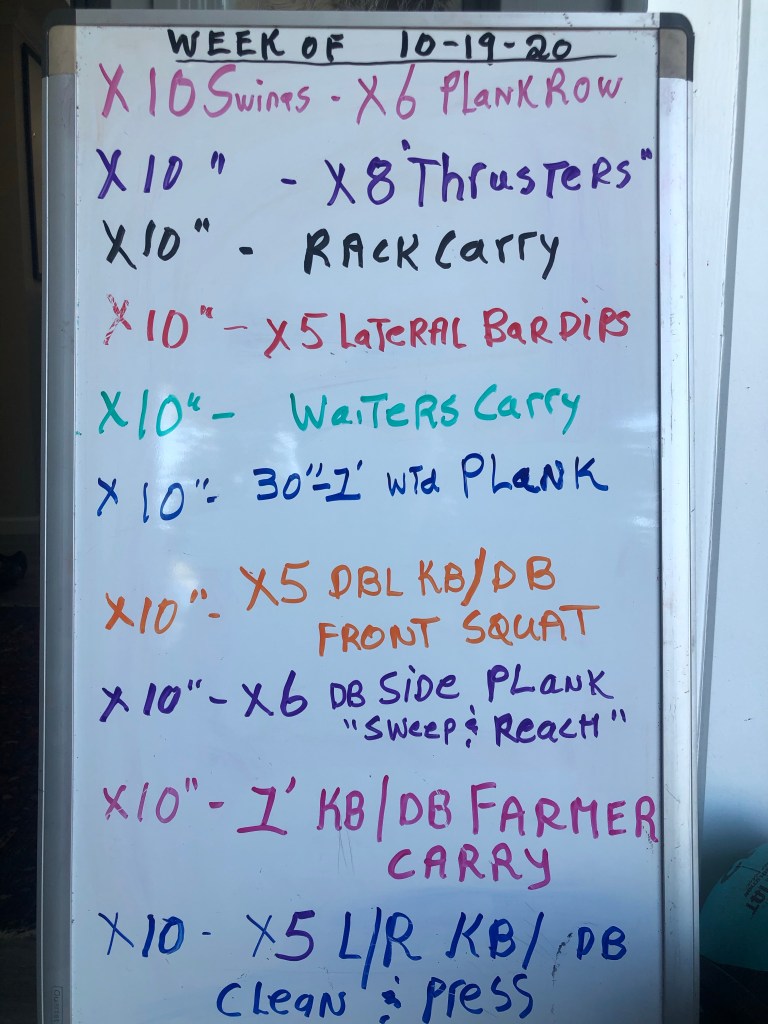 WEEK OF 10-19-20
X10 Swings - X6 PLANK ROW
X10 " - X8 "Thrusters"
X10 " - RACK Carry
X10 " - X5 LATERAL BAR DIPS
X10 " - WAITERS Carry
X10 "- 30"-1' WTd PLANK
X10 "- X5 DBL KB/DB
FRONT SQUAT
X10 " - X6 DB SIDE PLANK
"SWEEP & REACH"
X10 " - 1' KB/DB FARMER
CARRY
X10 - X5 L/R KB/ DB
CLEAN & PRESS